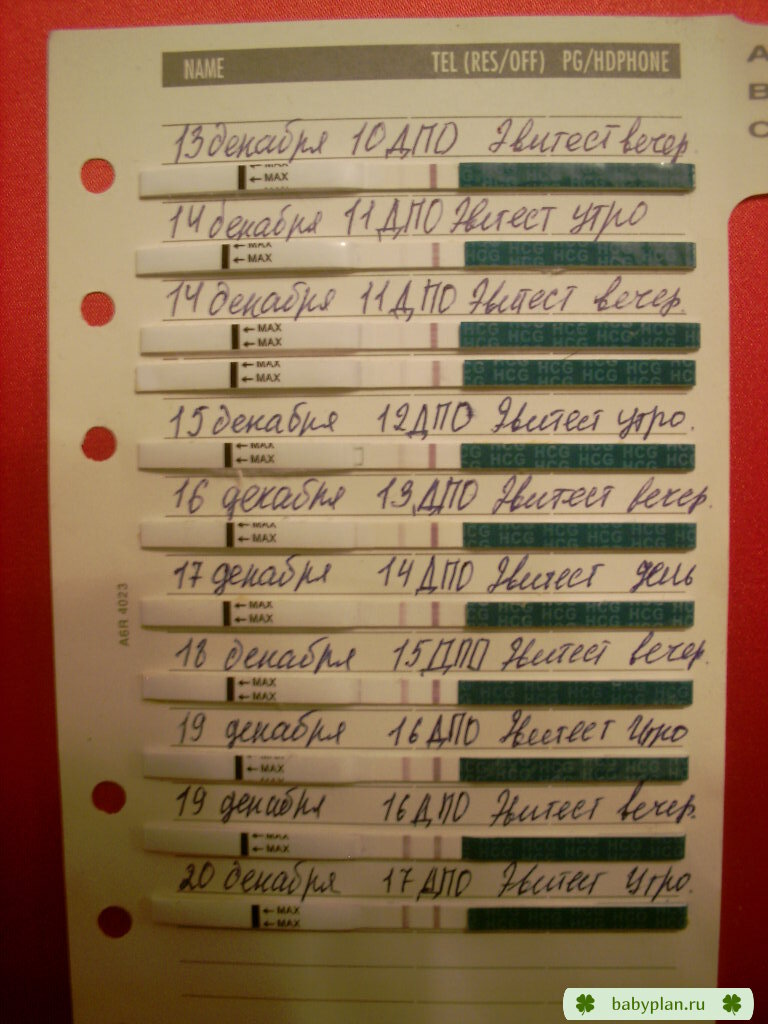 NAME TEL (RES/OFF) PG/HDPHONE
A
B
C
13 декабря 10 ДПО Эвитест вечер.
← MAX
← MAX
HCG HCG HCG
14 декабря 11 ДПО Эвитест утро
← MAX
← MAX
HCG HCG HCG
14 декабря 11 ДПО Эвитест вечер.
← MAX
← MAX
HCG HCG HCG
← MAX
← MAX
HCG HCG HCG
15 декабря 12 ДПО Эвитест утро.
← MAX
← MAX
HCG HCG HCG
16 декабря 13 ДПО Эвитест вечер.
← MAX
← MAX
HCG HCG HCG
17 декабря 14 ДПО Эвитест день
← MAX
← MAX
HCG HCG HCG
18 декабря 15 ДПО Эвитест вечер.
← MAX
← MAX
HCG HCG HCG
19 декабря 16 ДПО Эвитест Утро
← MAX
← MAX
HCG HCG HCG
19 декабря 16 ДПО Эвитест вечер.
← MAX
← MAX
HCG HCG HCG
20 декабря 17 ДПО Эвитест Утро.
← MAX
← MAX
A6R 4023
babyplan.ru